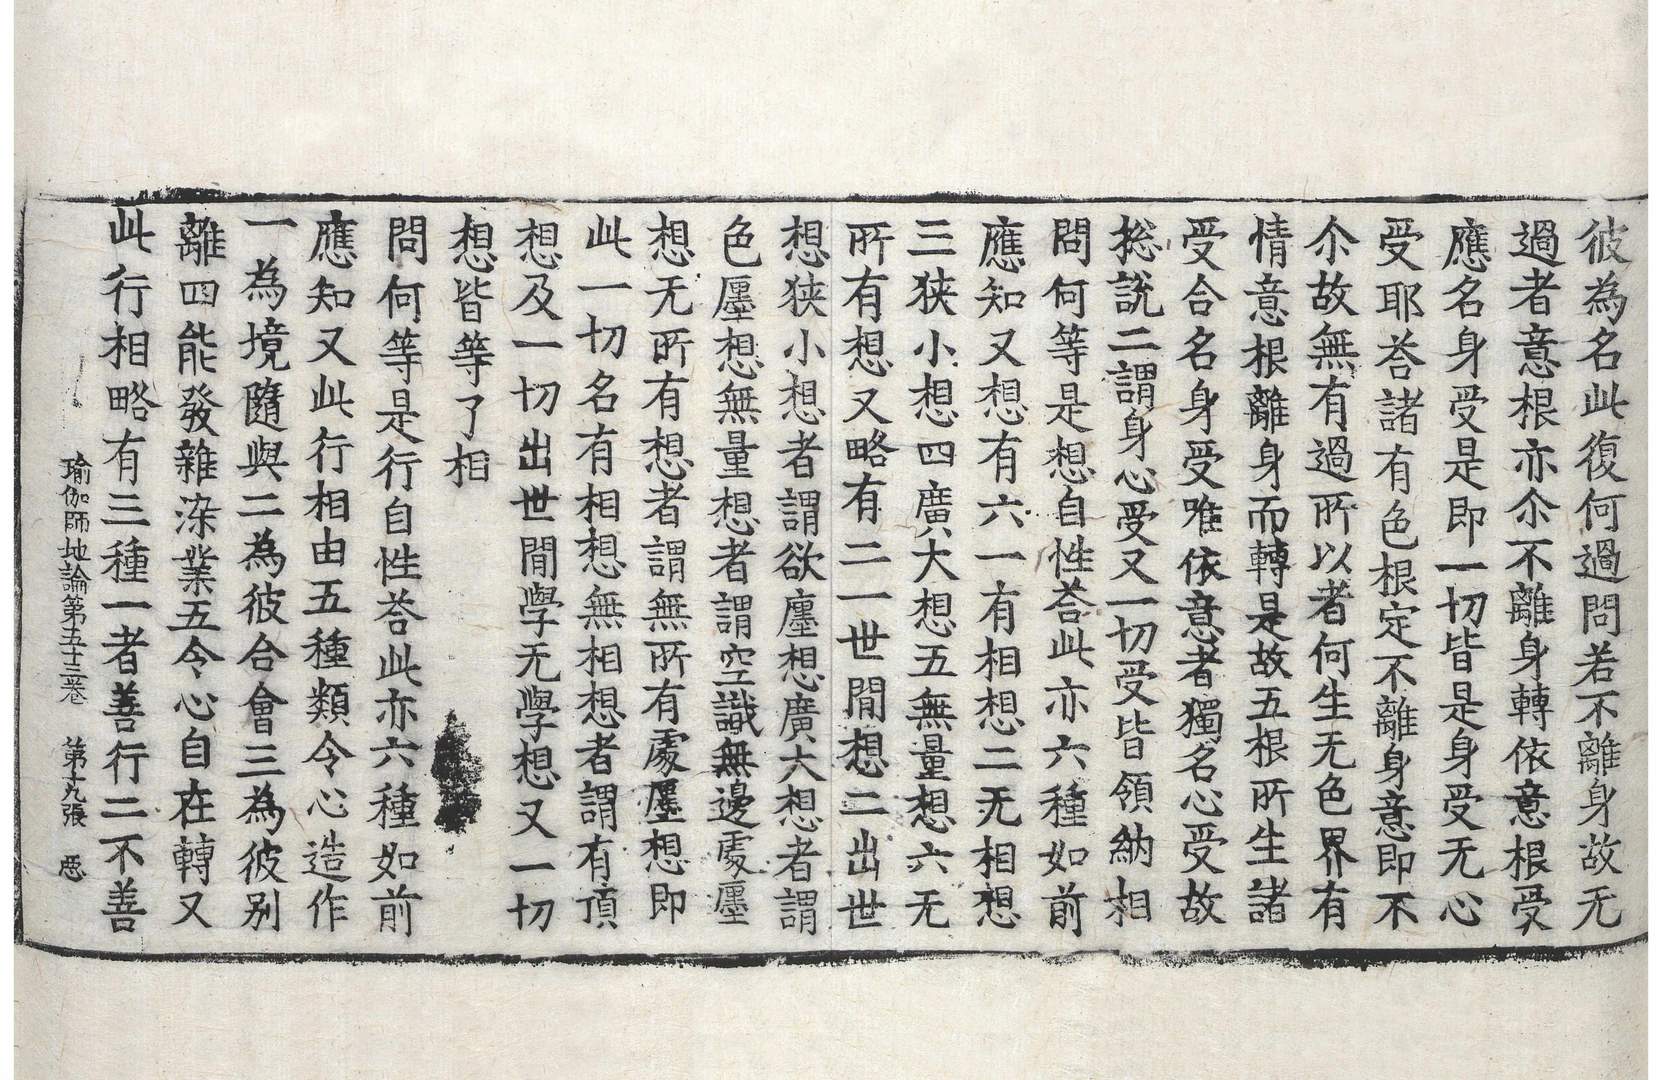 彼為名此復何過問若不離身故无
過者意根亦尒不離身轉依意根受
應名身受是即一切皆是身受无心
受耶荅諸有色根定不離身意即不
尒故無有過所以者何生无色界有
情意根離身而轉是故五根所生諸
受合名身受唯依意者獨名心受故
捴說二謂身心受又一切受皆領納相
問何等是想自性荅此亦六種如前
應知又想有六一有相想二无相想
三狹小想四廣大想五無量想六无
所有想又略有二一世間想二出世
想狹小想者謂欲㕓想廣大想者謂
色㕓想無量想者謂空識無邊處㕓
想无所有想者謂無所有處㕓想即
此一切名有相想無相想者謂有頂
想及一切出世間學无學想又一切
想皆等了相
問何等是行自性荅此亦六種如前
應知又此行相由五種類令心造作
一為境隨與二為彼合會三為彼别
離四能發雜染業五令心自在轉又
此行相略有三種一者善行二不善
瑜伽師地論第五十三卷 第十九張 惡